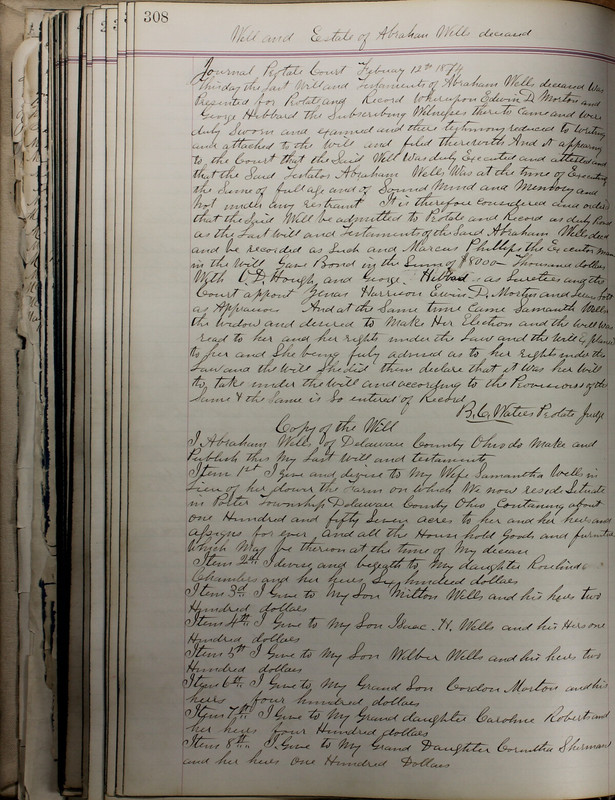 308
Will and Estate of Abraham Wells deceased
Journal Probate Court Febuary 12th 1874
This day the Last Will and Testaments of Abraham Wells deceased was
Presented for Probate and Record whereupon Edwin D. Morton and
George Hibbard the Subscribing Witnesses thereto Came and were
duly Sworn and examined and their testimony reduced to writing
and attached to the Will and filed therewith And it appearing
to the Court that the Said Will Was duly Executed and attested and
that the Said Testator Abraham Wells Was at the time of Executing
the Same of full age and of Sound Mind and Memory and
Not under any restraint It is therefore Considered and ordered
that the Said Will be admitted to Probate and Record as duly
as the Last Will and Testaments of the Said Abraham Wells decd
and be recorded as Such and Marcus Phillips the Executor
in the Will Gave Bond in the Sum of $8000 Thousand dollars
With C. D. Hough and George Hibbard as Sureties and the
Court appoint Zenas Harrison Edwin D. Morton and
as Appraisers And at the Same time Came Samantha Wells
the widow and desired to Make Her Election and the Will Was
read to her and her rights under the Law and the Will Explained
to her and She being fuly advised as to her rights under the
Law and the Will She did then declare that it Was her Will
to take under the Will and according to the Provisions of the
Same & the Same is So entered of Record
B. C. Waters Probate Judge
Copy of the Will
I Abraham Wells of Delaware County Ohio do Make and
Publish this My Last Will and testaments
Item 1st I Give and devise to My Wife Samantha Wells in
Lieu of her dower the Farm on Which We now reside Situate
in Porter Township Delaware County Ohio Containing about
one Hundred and fifty Seven acres to her and her heirs and
assigns for ever And all the House hold Goods and furniture
Which May be theron at the time of My decease
Item 2d I devise and begeath to My daughter Roselinda
Chambers and her heirs Six hundred dollars
Item 3d I Give to My Son Milton Wells and his heirs two
Hundred dollars
Item 4th I Give to My Son Isaac H. Wells and his Hers one
Hundred dollars
Item 5th I Give to My Son Wilber Wells and his heirs two
Hundred dollars
Item 6th I Give to My Grand Son Cordon Morton and his
heirs four hundred dollars
Item 7th I Give to My Grand daughter Caroline Roberts and
her heirs four Hundred dollars
Item 8th I Give to My Grand Daughter Corintha Sherman
and her heirs One Hundred Dollars